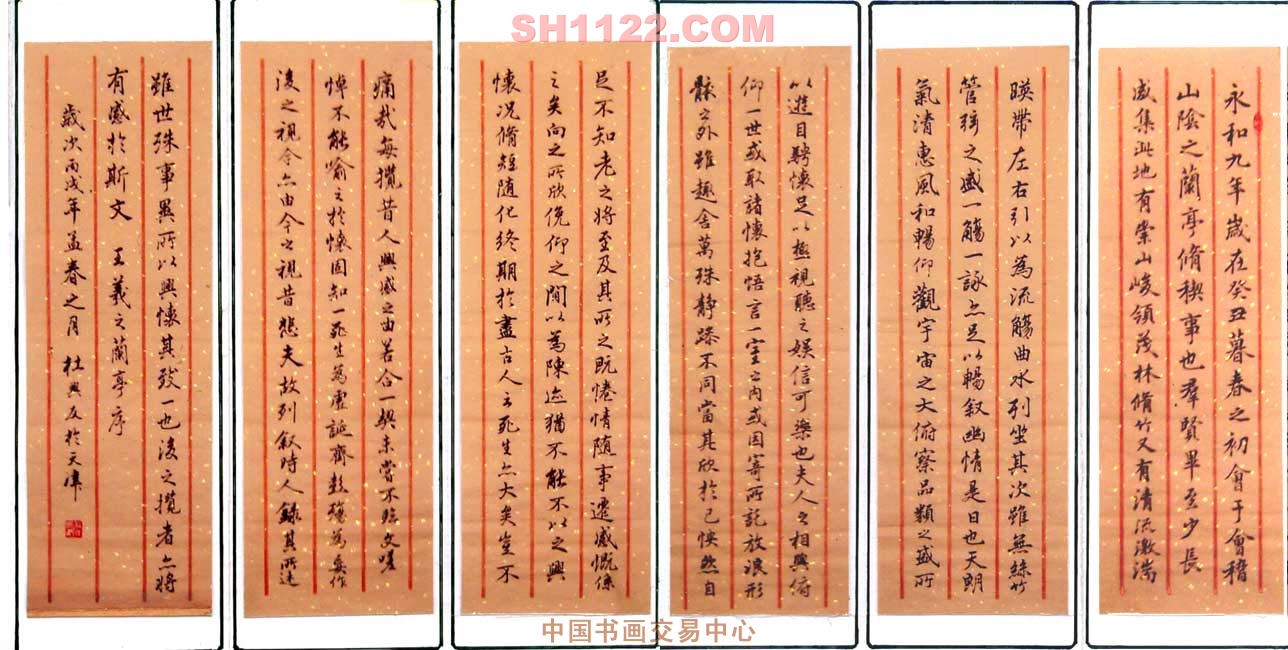 SH1122.COM
永和九年歲在癸丑暮春之初會于會稽
山陰之蘭亭脩稧事也羣賢畢至少長
咸集此地有崇山峻領茂林脩竹又有清流激湍
暎帶左右引以為流觴曲水列坐其次雖無絲竹
管弦之盛一觴一詠亦足以暢叙幽情是日也天朗
氣清惠風和暢仰觀宇宙之大俯察品類之盛所
以遊目騁懷足以極視聽之娛信可樂也夫人之相與俯
仰一世或取諸懷抱悟言一室之內或因寄所託放浪形
骸之外雖趣舍萬殊静躁不同當其欣於己怏然自
足不知老之將至及其所之既惓情随事遷感慨係
之矣向之所欣俛仰之間以為陳迹猶不能不以之興
懷况脩短随化終期於盡古人云死生亦大矣豈不
痛哉每攬昔人興感之由若合一契未嘗不臨文嗟
悼不能喻之於懷固知一死生為虛誕齊彭殤為妄作
後之視今亦由今之視昔悲夫故列叙時人錄其所述
雖世殊事異所以興懷其致一也後之攬者亦將
有感於斯文 王羲之蘭亭序
歲次丙戌年孟春之月 杜興友於天津
中国书画交易中心